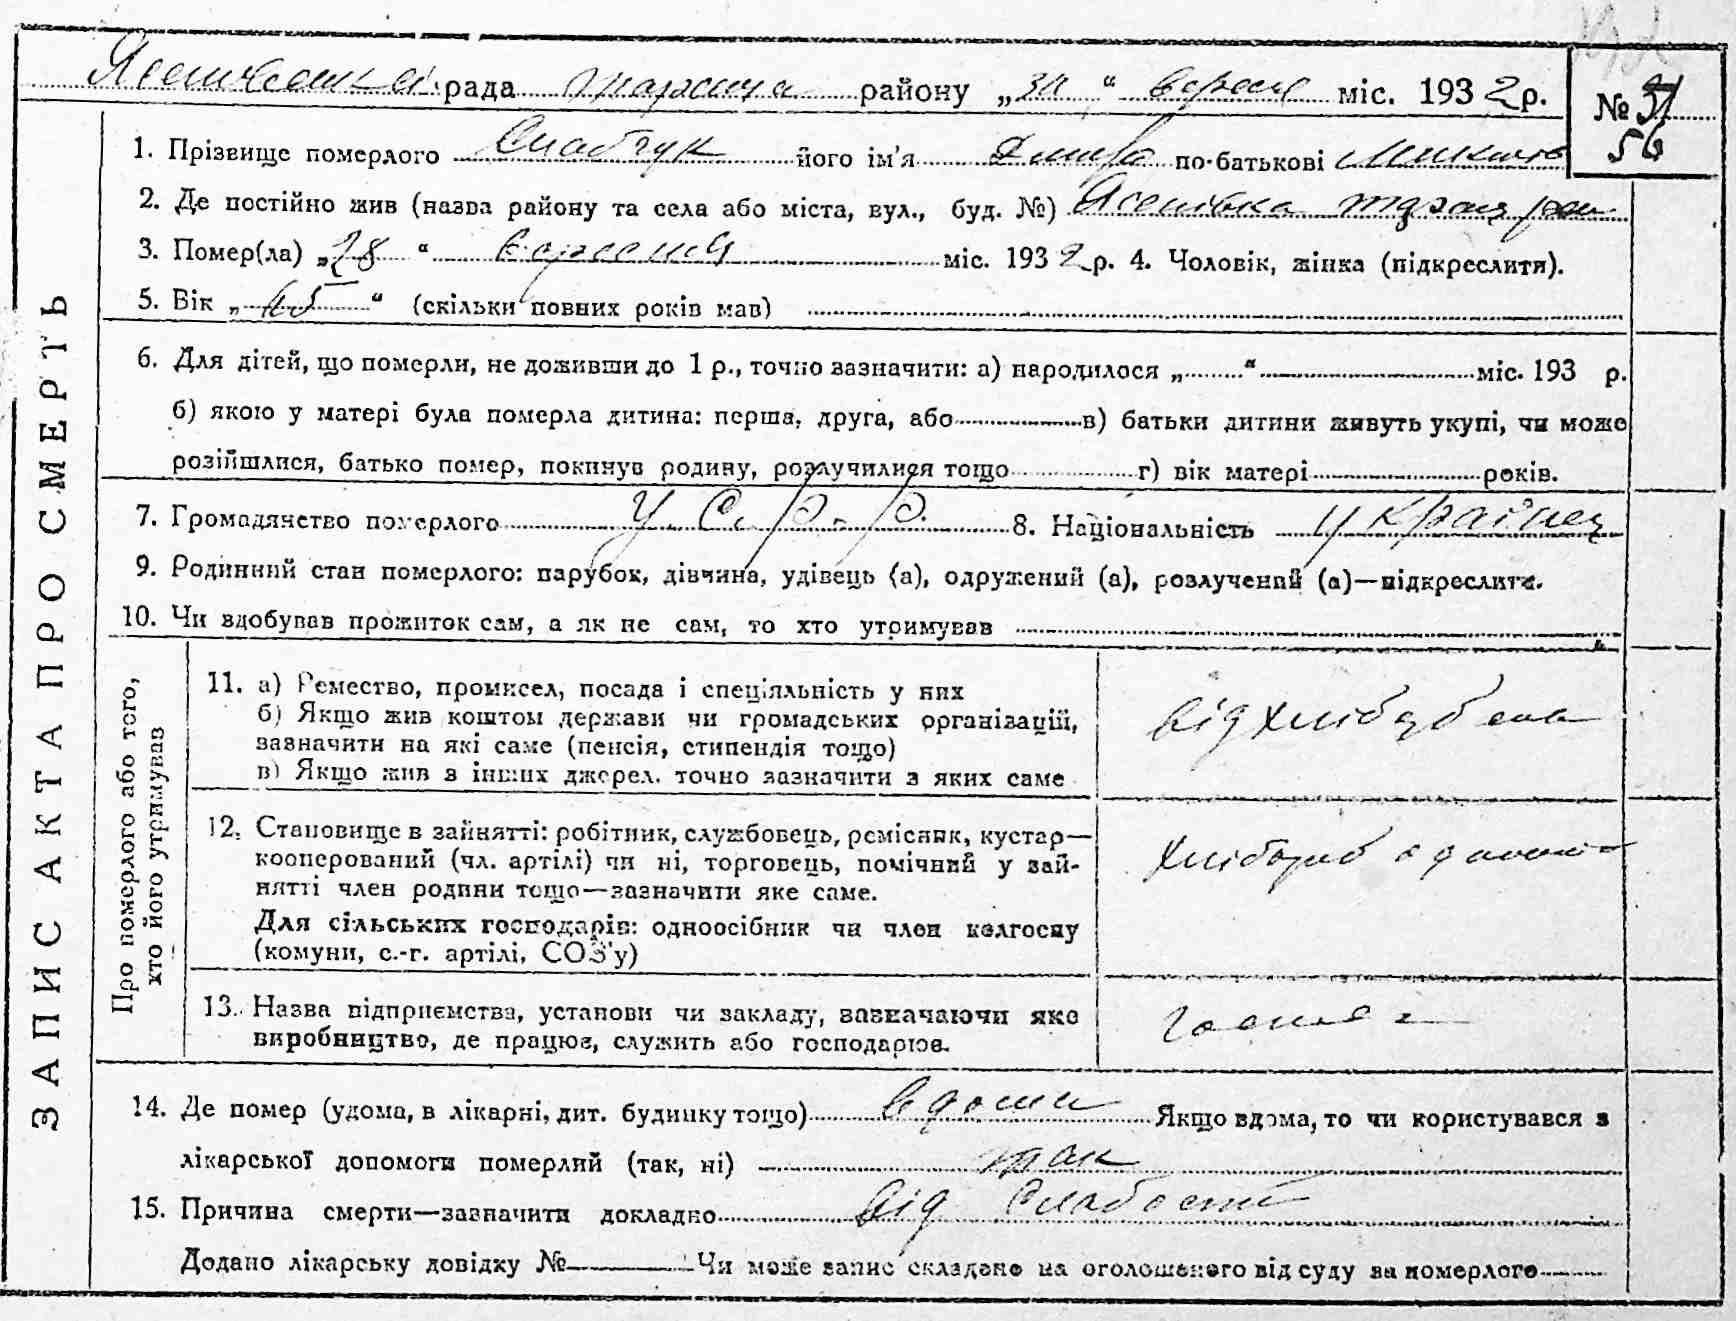 рада района району „30“ вересня міс. 1932 р. № 51
56
1. Прізвище померлого його ім'я по-батькові
2. Де постійно жив (назва району та села або міста, вул., буд. №) Ясенівка
3. Помер(ла) „28“ вересня міс. 1932 р. 4. Чоловік, жінка (підкреслити).
5. Вік „45“ (скільки повних років мав)
6. Для дітей, що померли, не доживши до 1 р., точно зазначити: а) народилося „ “ міс. 193 р.
б) якою у матері була померла дитина: перша, друга, або в) батьки дитини живуть укупі, чи може
розійшлися, батько помер, покинув родину, розлучилися тощо г) вік матері років.
7. Громадянство померлого У. С. Р. Р. 8. Національність українец
9. Родинний стан померлого: парубок, дівчина, удівець (а), одружений (а), розлучений (а)—підкреслити.
10. Чи здобував прожиток сам, а як не сам, то хто утримував
ЗАПИС АКТА ПРО СМЕРТЬ
Про померлого або того,
хто його утримував
11. а) Ремество, промисел, посада і спеціяльність у них
б) Якщо жив коштом держави чи громадських організацій,
зазначити на які саме (пенсія, стипендія тощо)
в) Якщо жив з інших джерел, точно зазначити з яких саме
від
12. Становище в зайнятті: робітник, службовець, ремісник, кустар—
кооперований (чл. артілі) чи ні, торговець, помічний у зай-
нятті член родини тощо—зазначити яке саме.
Для сільських господарів: одноосібник чи член колгоспу
(комуни, с.-г. артілі, СОЗ'у)
хлібороб
13. Назва підприємства, установи чи закладу, зазначаючи яке
виробництво, де працює, служить або господарює.
14. Де помер (удома, в лікарні, дит. будинку тощо) вдома Якщо вдома, то чи користувався з
лікарської допомоги померлий (так, ні) так
15. Причина смерти—зазначити докладно від слабости
Додано лікарську довідку № Чи може запис складено на оголошеного від суду за померлого